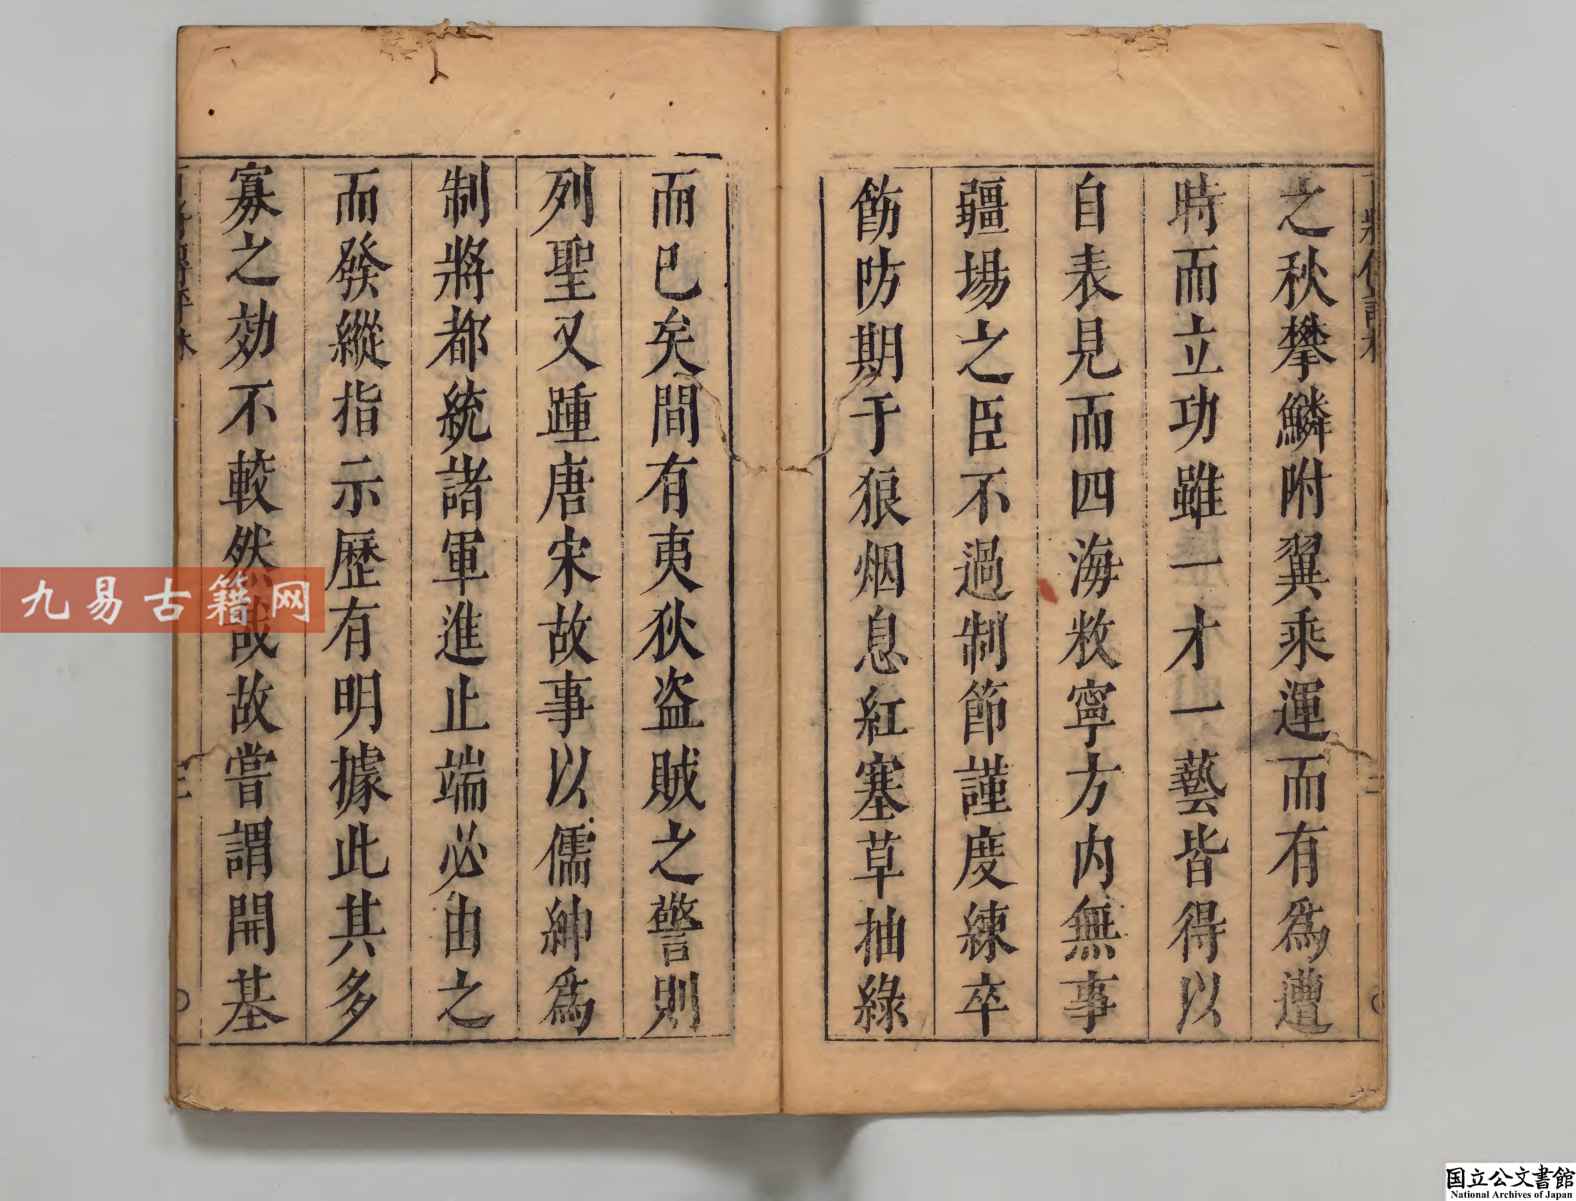 之秋攀鱗附翼乘運而有爲遭
時而立功雖一才一藝皆得以
自表見而四海敉寧方内無事
疆場之臣不過制節謹度練卒
飭防期于狼烟息紅塞草抽綠
而已矣間有夷狄盜賊之警則
列聖又踵唐宋故事以儒紳爲
制將都統諸軍進止端必由之
而發縱指示歷有明據此其多
寡之効不較然哉故嘗謂開基
九易古籍网
国立公文書館
National Archives of Japan